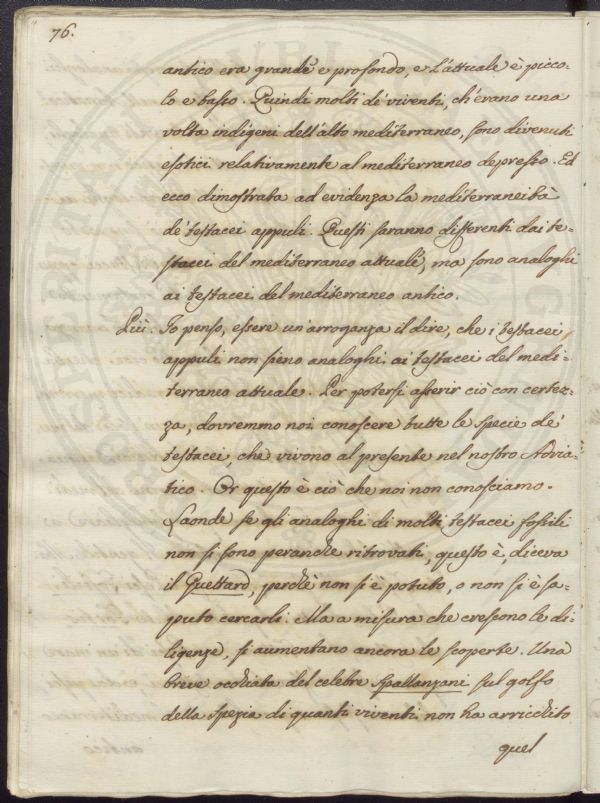 76.
antico era grande e profondo, e l'attuale è picco-
lo e basso. Quindi molti de' viventi, ch'erano una
volta indigeni dell'alto mediterraneo, sono divenuti
esotici relativamente al mediterraneo depresso. Ed
ecco dimostrata ad evidenza la mediterraneità
de' testacei appuli. Questi saranno differenti dai te-
stacei del mediterraneo attuale, ma sono analoghi
ai testacei del mediterraneo antico.
Io penso, essere un'arroganza il dire, che i testacei
appuli non sieno analoghi ai testacei del medi-
terraneo attuale. Per potersi asserir ciò con certez-
za, dovremmo noi conoscere tutte le specie de'
testacei, che vivono al presente nel nostro Adria-
tico. Or questo è ciò che noi non conosciamo.
Laonde se gli analoghi di molti testacei fossili
non si sono peranche ritrovati, questo è, diceva
il Guettard, perchè non si è potuto, o non si è sa-
puto cercarli. Ma a misura che crescono le di-
ligenze, si aumentano ancora le scoperte. Una
breve occhiata del celebre Spallanzani sul golfo
della Spezia di quanti viventi non ha arricchito
quel